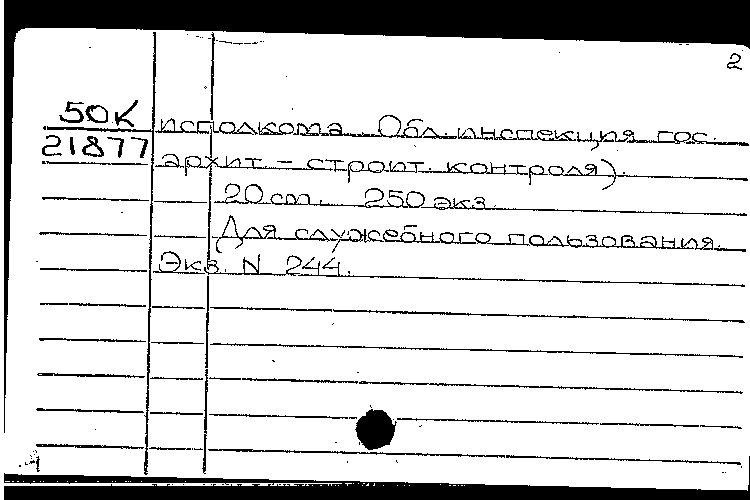 2
50К исполкома. Обл. инспекция гос.
21877 архит - строит. контроля).
20 cm. 250 экз.
Для служебного пользования.
Экз. N 244.